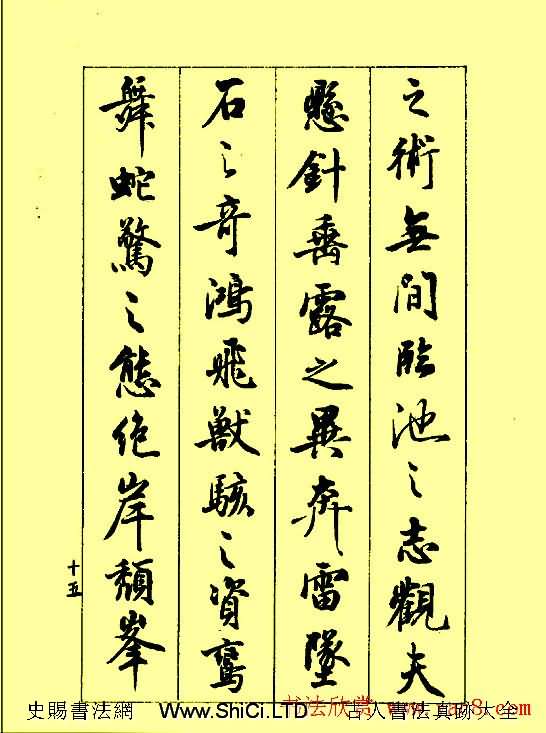 之術無間臨池之志觀夫
懸針垂露之異奔雷墜
石之奇鴻飛獸駭之資鸞
舞蛇驚之態絶岸頹峯
十五
史賜書法網 www.ShiCi.LTD 古人書法真跡大全
书法欣赏